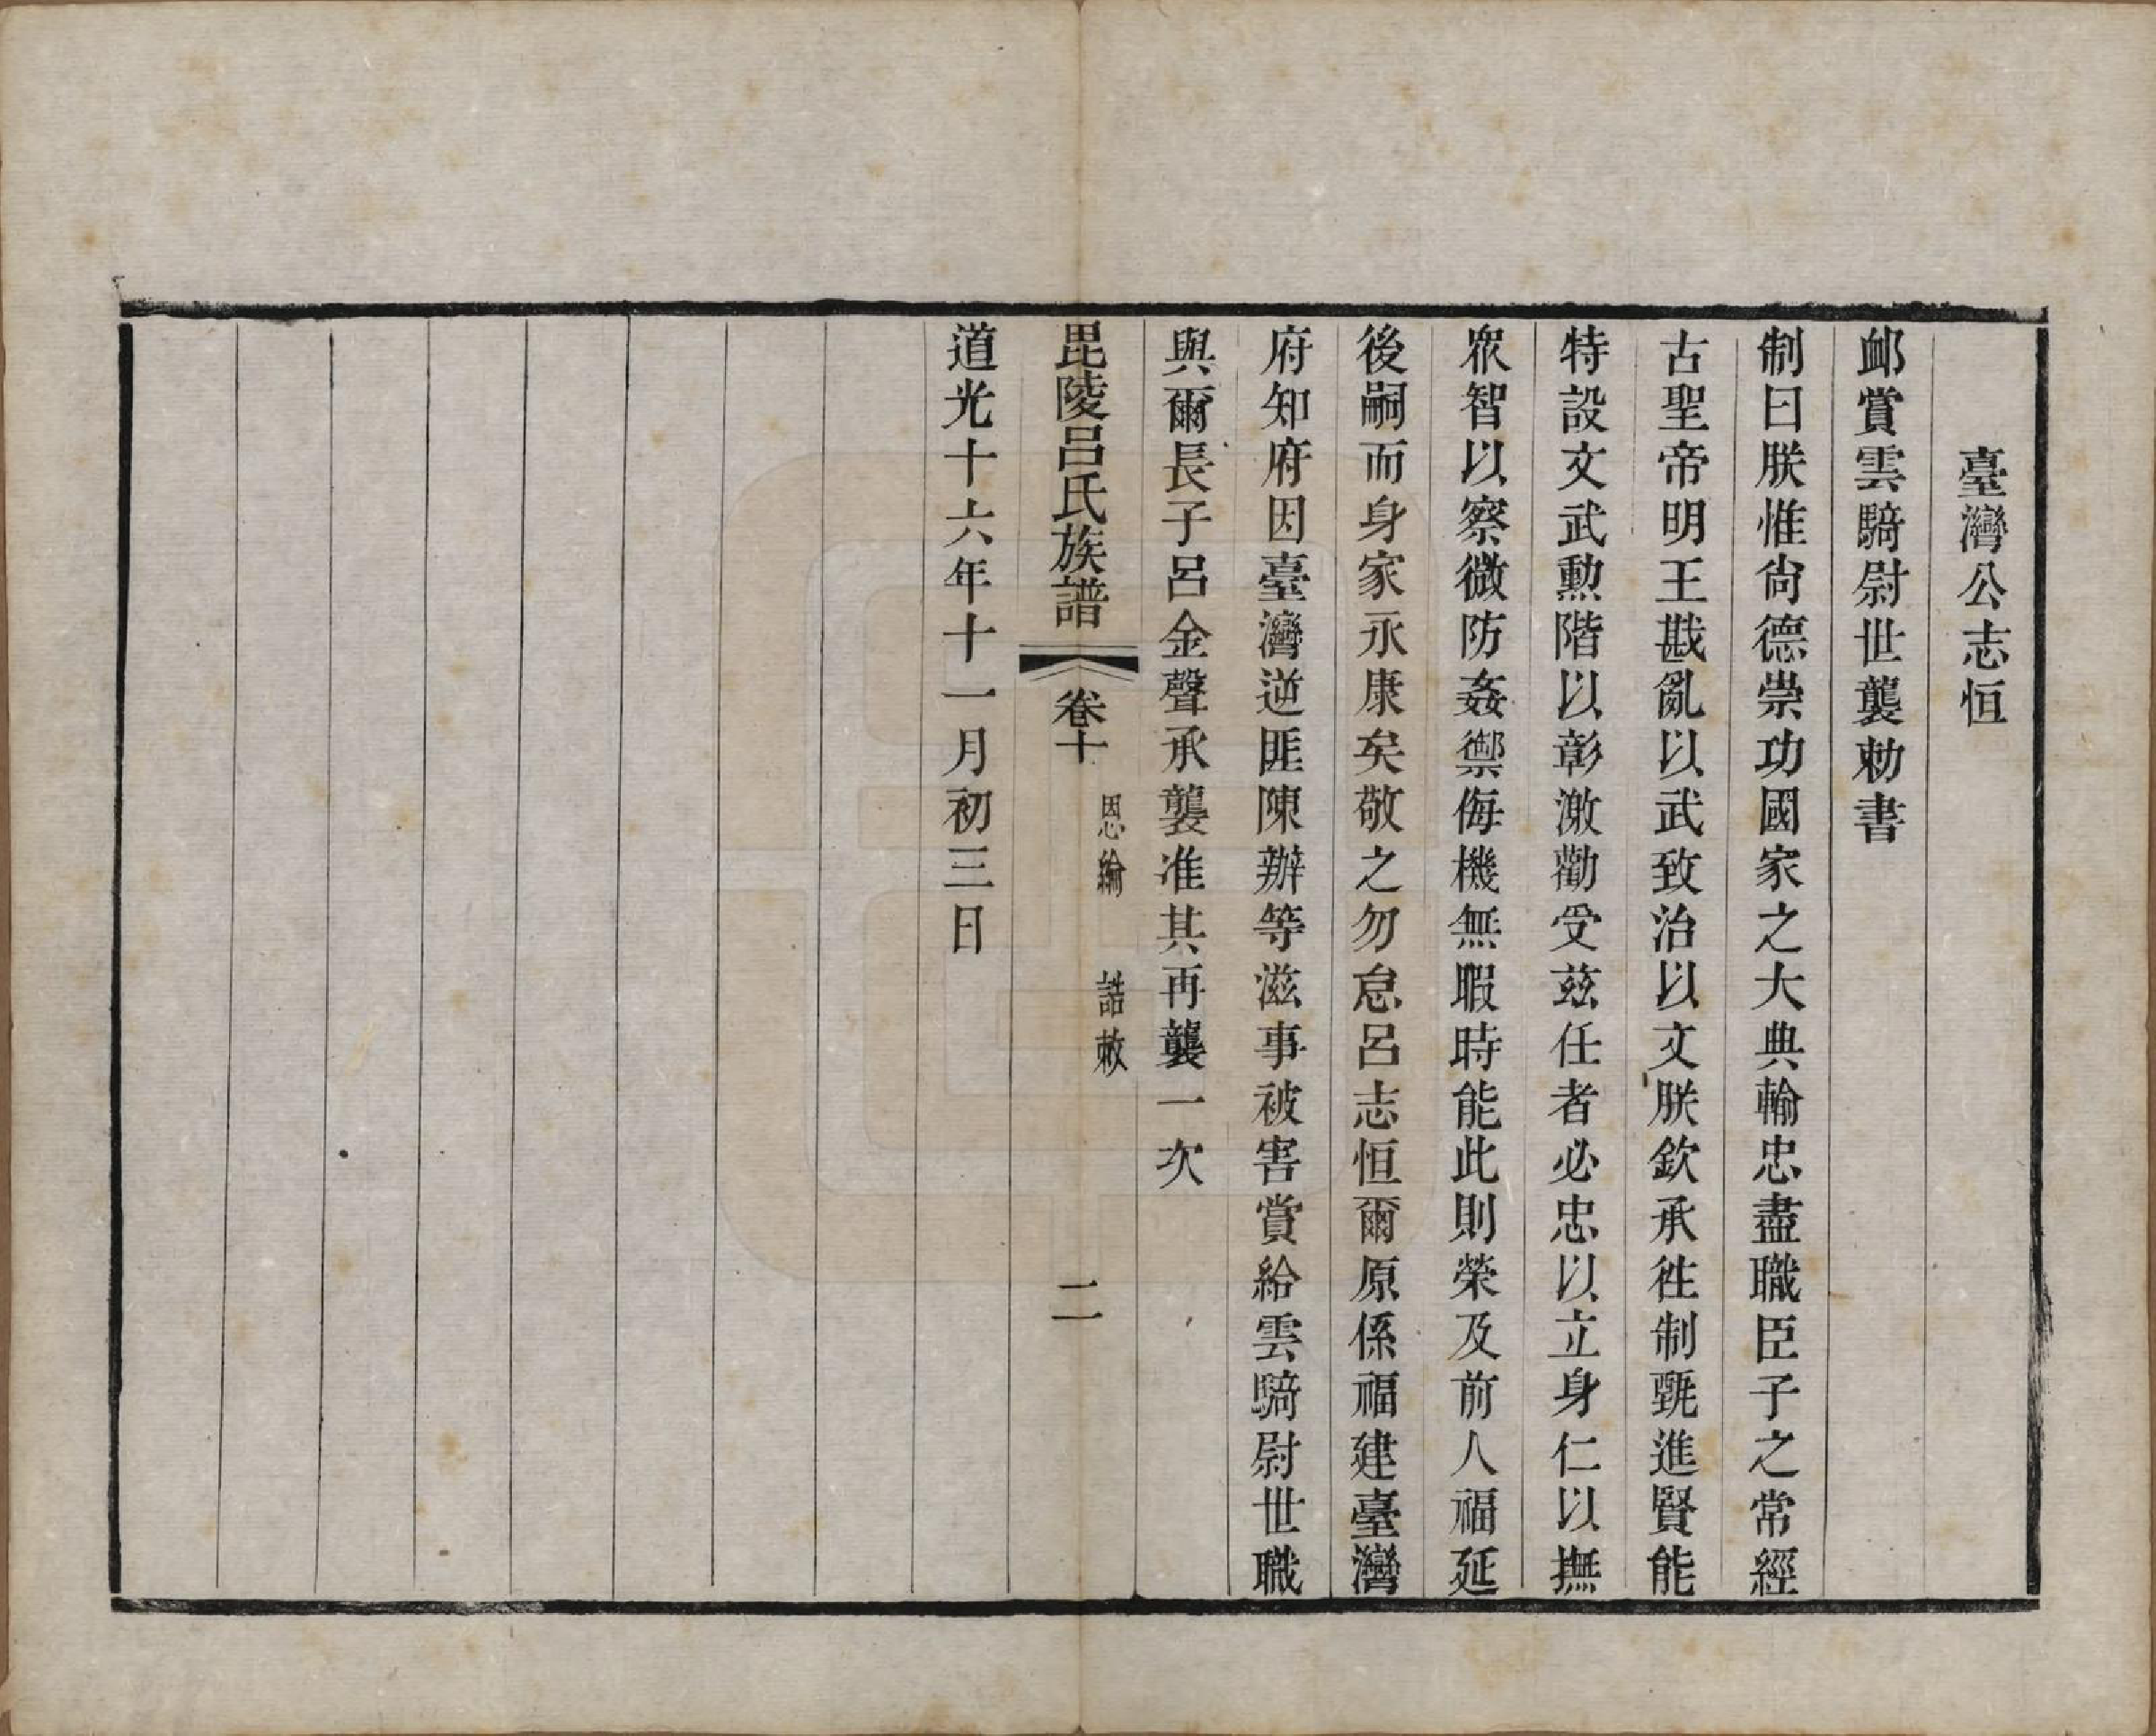 臺灣公志恒
卹賞雲騎尉世襲勅書
制曰朕惟尙德崇功國家之大典輸忠盡職臣子之常經
古聖帝明王戡亂以武致治以文朕欽承徃制甄進賢能
特設文武勲階以彰激勸受茲任者必忠以立身仁以撫
衆智以察微防姦禦侮機無暇時能此則榮及前人福延
後嗣而身家永康矣敬之勿怠呂志恒爾原係福建臺灣
府知府因臺灣逆匪陳辦等滋事被害賞給雲騎尉世職
與爾長子呂金聲承襲准其再襲一次
毘陵呂氏族譜 卷十 恩綸 誥敕 二
道光十六年十一月初三日